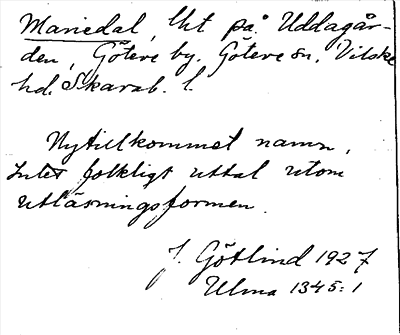 Mariedal, lht på Uddagår-
den, Göteve by, Göteve sn, Vilske
hd. Skarab. l.
Nytillkommet namn,
Intet folkligt uttal utom
utläsningsformen.
J. Götlind 1927
Ulma 1345:1